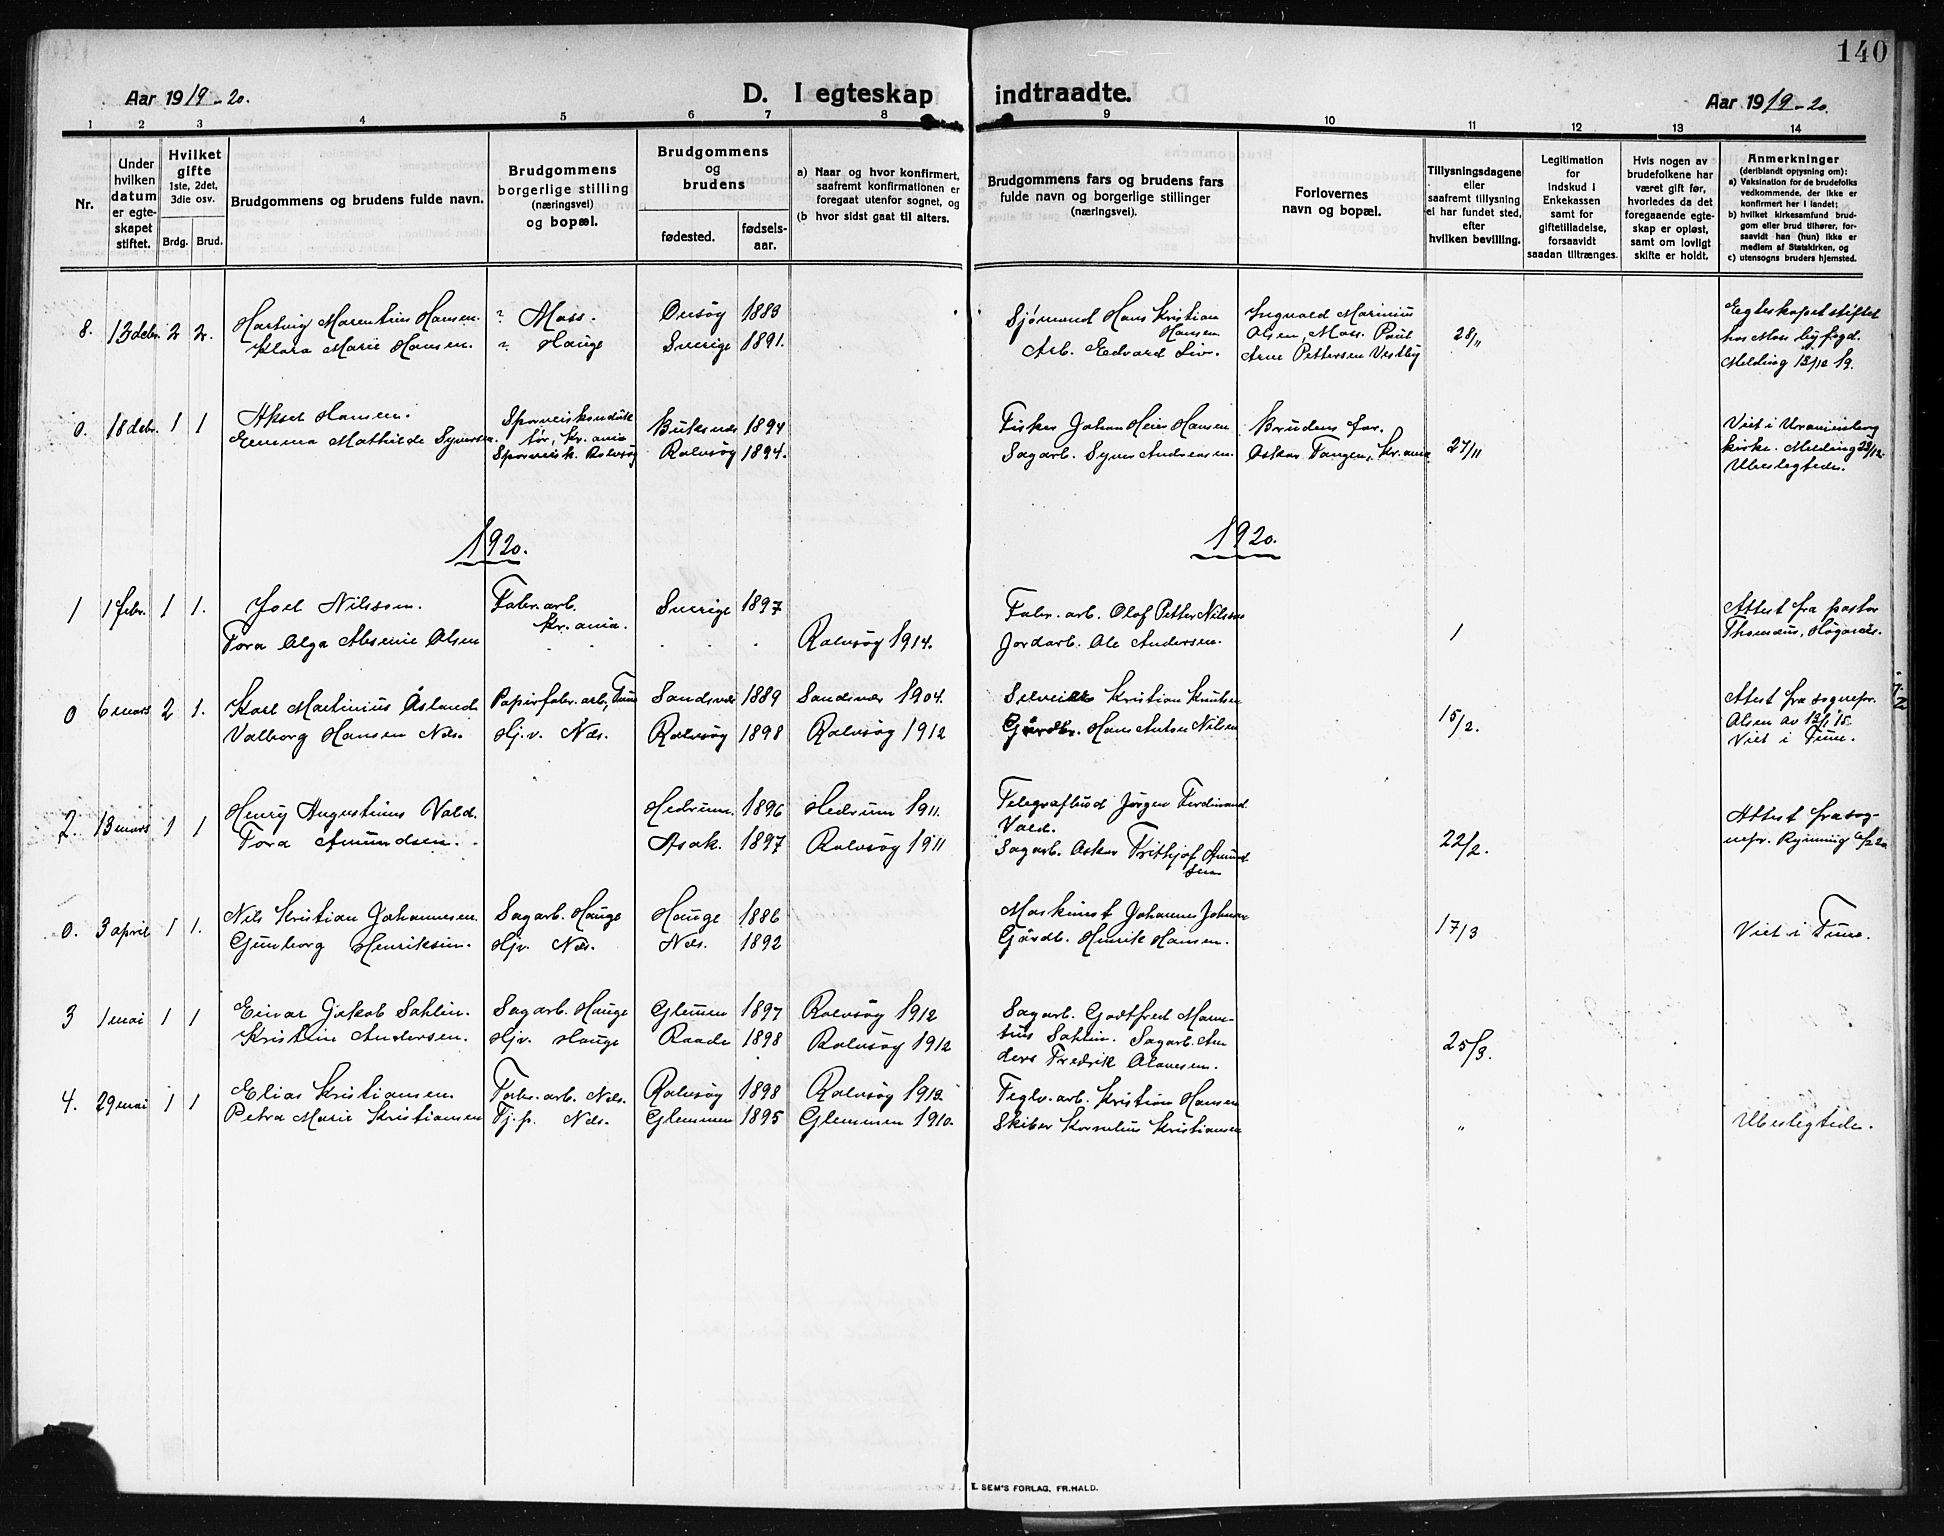 140
Aar 1919-20.
D. I egteskap indtraadte.
Aar 1919-20.
1 2 3 4 5 6 7 8 9 10 11 12 13 14
Nr.
Under hvilken datum er egteskapet stiftet.
Hvilket gifte 1ste, 2det, 3die osv.
Brdg. Brud.
Brudgommens og brudens fulde navn.
Brudgommens borgerlige stilling (næringsvei) og bopæl.
Brudgommens og brudens
fødested. fødsels-aar.
a) Naar og hvor konfirmert, saafremt konfirmationen er foregaat utenfor sognet, og
(b hvor sidst gaat til alters.
Brudgommens fars og brudens fars fulde navn og borgerlige stillinger (næringsvei).
Forlovernes navn og bopæl.
Tillysningsdagene eller saafremt tillysning ei har fundet sted, efter hvilken bevilling.
Legitimation for indskud i Enkekassen samt for giftetilladelse, forsaavidt saadan tiltrænges.
Hvis nogen av brudefolkene har været gift før, hvorledes da det foregaaende egteskap er opløst, samt om lovligt skifte er holdt.
Anmerkninger
(deriblandt opjysning om):
a) Vaksination for de brudefolks vedkommende, der ikke er konfirmert her i landet;
b) hvilket kirkesamfund brudgom eller brud tilhører, forsaavidt han (hun) ikke er medlem af Statskirken, og
c) utensogns bruders hjemsted.
8. 13 debr. 2 2. Hartvig Marentius Hansen. " Moss. Onsøy 1883 Sjømand Hans Kristian Hansen Ingvald Marinius
Klara Marie Hansen. " Hauge Sverige 1891. Arb. Edvard Liv. Olsen, Moss. Paul Arne Pettersen Vestby 28/11
Egteskapet stiftet hos Moss byfogd. Melding 13/12 19.
0. 18 debr. 1 1 Aksel Hansen. Sporveiskonduktør, Kr.ania Buksnæs 1894 Fisker Johan Heier Hansen Brudens far.
Emma Mathilde Syversen. Sporveisk. Rolvsøy Rolvsøy 1894. Sagarb. Syver Andersen. Oskar Tangen, Kr.ania 27/11
Viet i Uranienborg kirke. Melding 29/12. Ubeslegtede.
1920. 1920.
1 1 febr. 1 1. Joel Nilssen. Fabr.arb. Kr.ania. Sverige 1897 Fabr. arb. Olof Petter Nilsson
Tora Olga Absenie Olsen Rolvsøy 1914. Jordarb. Ole Andersen. 1
Attest fra pastor
0 6 mars 2 1. Karl Martinius Åsland Papirfabr.arb., Tune Sandsvær 1889 Sandsvær 1904. Kristian Knutsen
Valborg Hansen Næs. Hj.v. Næs. Rolvsøy 1898 Rolvsøy 1912 Gårdbr. Hans Anton Nilsen 15/2.
Attest fra sognepr. Olsen av 13/1 '15. Viet i Tune.
2. 13 mars 1 1 Henry Augustinus Vald. Hedrum. 1896 Hedrum 1911. Telegrafbud Jørgen Ferdinand Vald.
Tora Amundsen. Asak. 1897 Rolvsøy 1911 Sagarb. Oskar Frithjof Amundsen 22/2.
Attest fra sognepr. Rynning 6/2 20
0. 3 april 1 1. Nils Kristian Johannesen. Sagarb. Hauge Hauge 1886 Maskinist Johannes Johnsen
Gunborg Henriksen. Hjv. Næs. Næs. 1892 Gårdb. Henrik Hansen. 17/3 Viet i Tune.
3 1 mai 1 1 Einar Jakob Sahlin. Sagarb. Hauge Glemmen 1897 Rolvsøy 1912 Sagarb. Godtfred Maretius Sahlin. Sagarb. An
Kristine Andersen. Hjv. Hauge Raade 1898 Rolvsøy 1912 ders Fredrik Olavesen. 25/3.
4. 29 mai 1 1 Elias Kristiansen. Fabr. arb. Næs. Rolvsøy 1898 Rolvsøy 1913. Teglv. arb. Kristian Hansen
Petra Marie Kristiansen Tj.p. Næs. Glemmen 1895 Glemmen 1910. Skiber Kornelius Kristiansen " Ubeslegtede.
E. SEM'S FORLAG, FR.HALD.